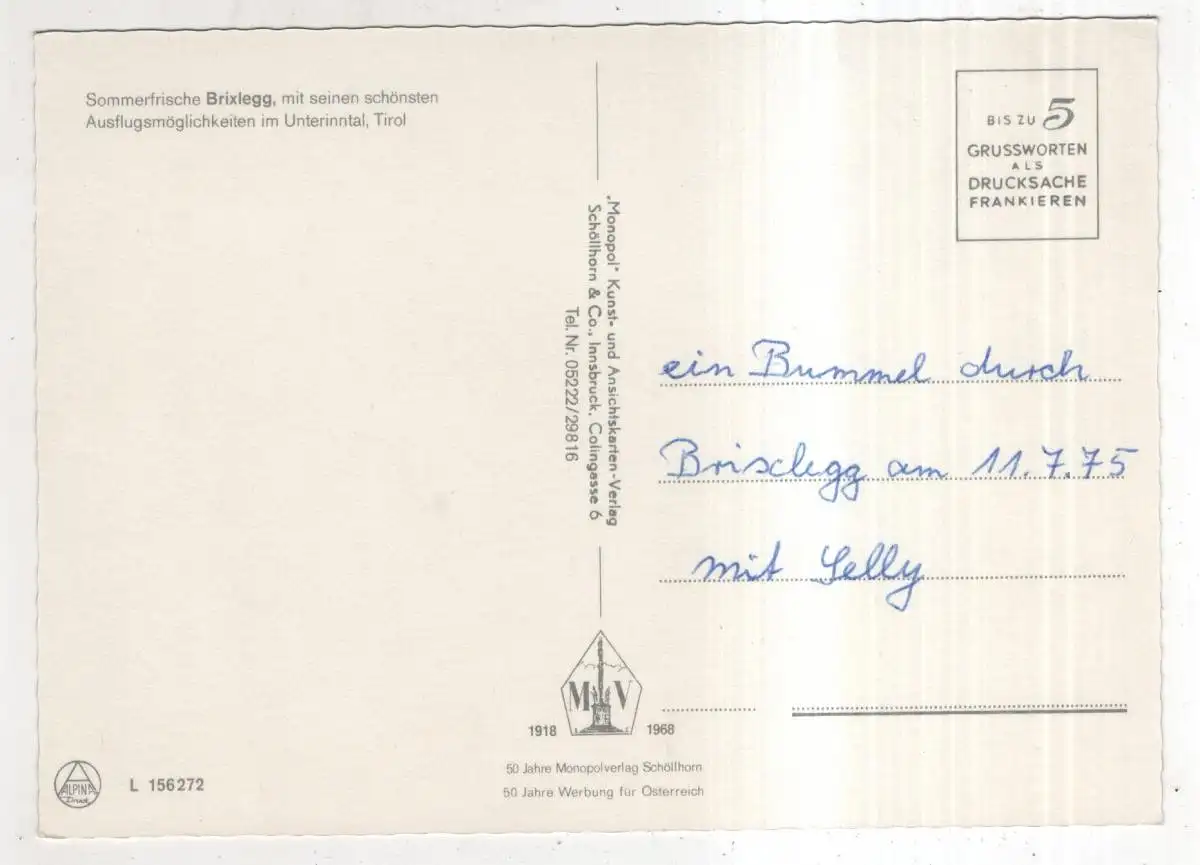 Sommerfrische Brixlegg, mit seinen schönsten
Ausflugsmöglichkeiten im Unterinntal, Tirol
BIS ZU 5
GRUSSWORTEN
ALS
DRUCKSACHE
FRANKIEREN
„Monopol" Kunst- und Ansichtskarten-Verlag
Schöllhorn & Co., Innsbruck, Colingasse 6
Tel. Nr. 05222/29816
ein Bummel durch
Brixlegg am 11.7.75
mit Selly
M V
1918 1968
50 Jahre Monopolverlag Schöllhorn
50 Jahre Werbung für Österreich
ALPINA
Druck
L 156272